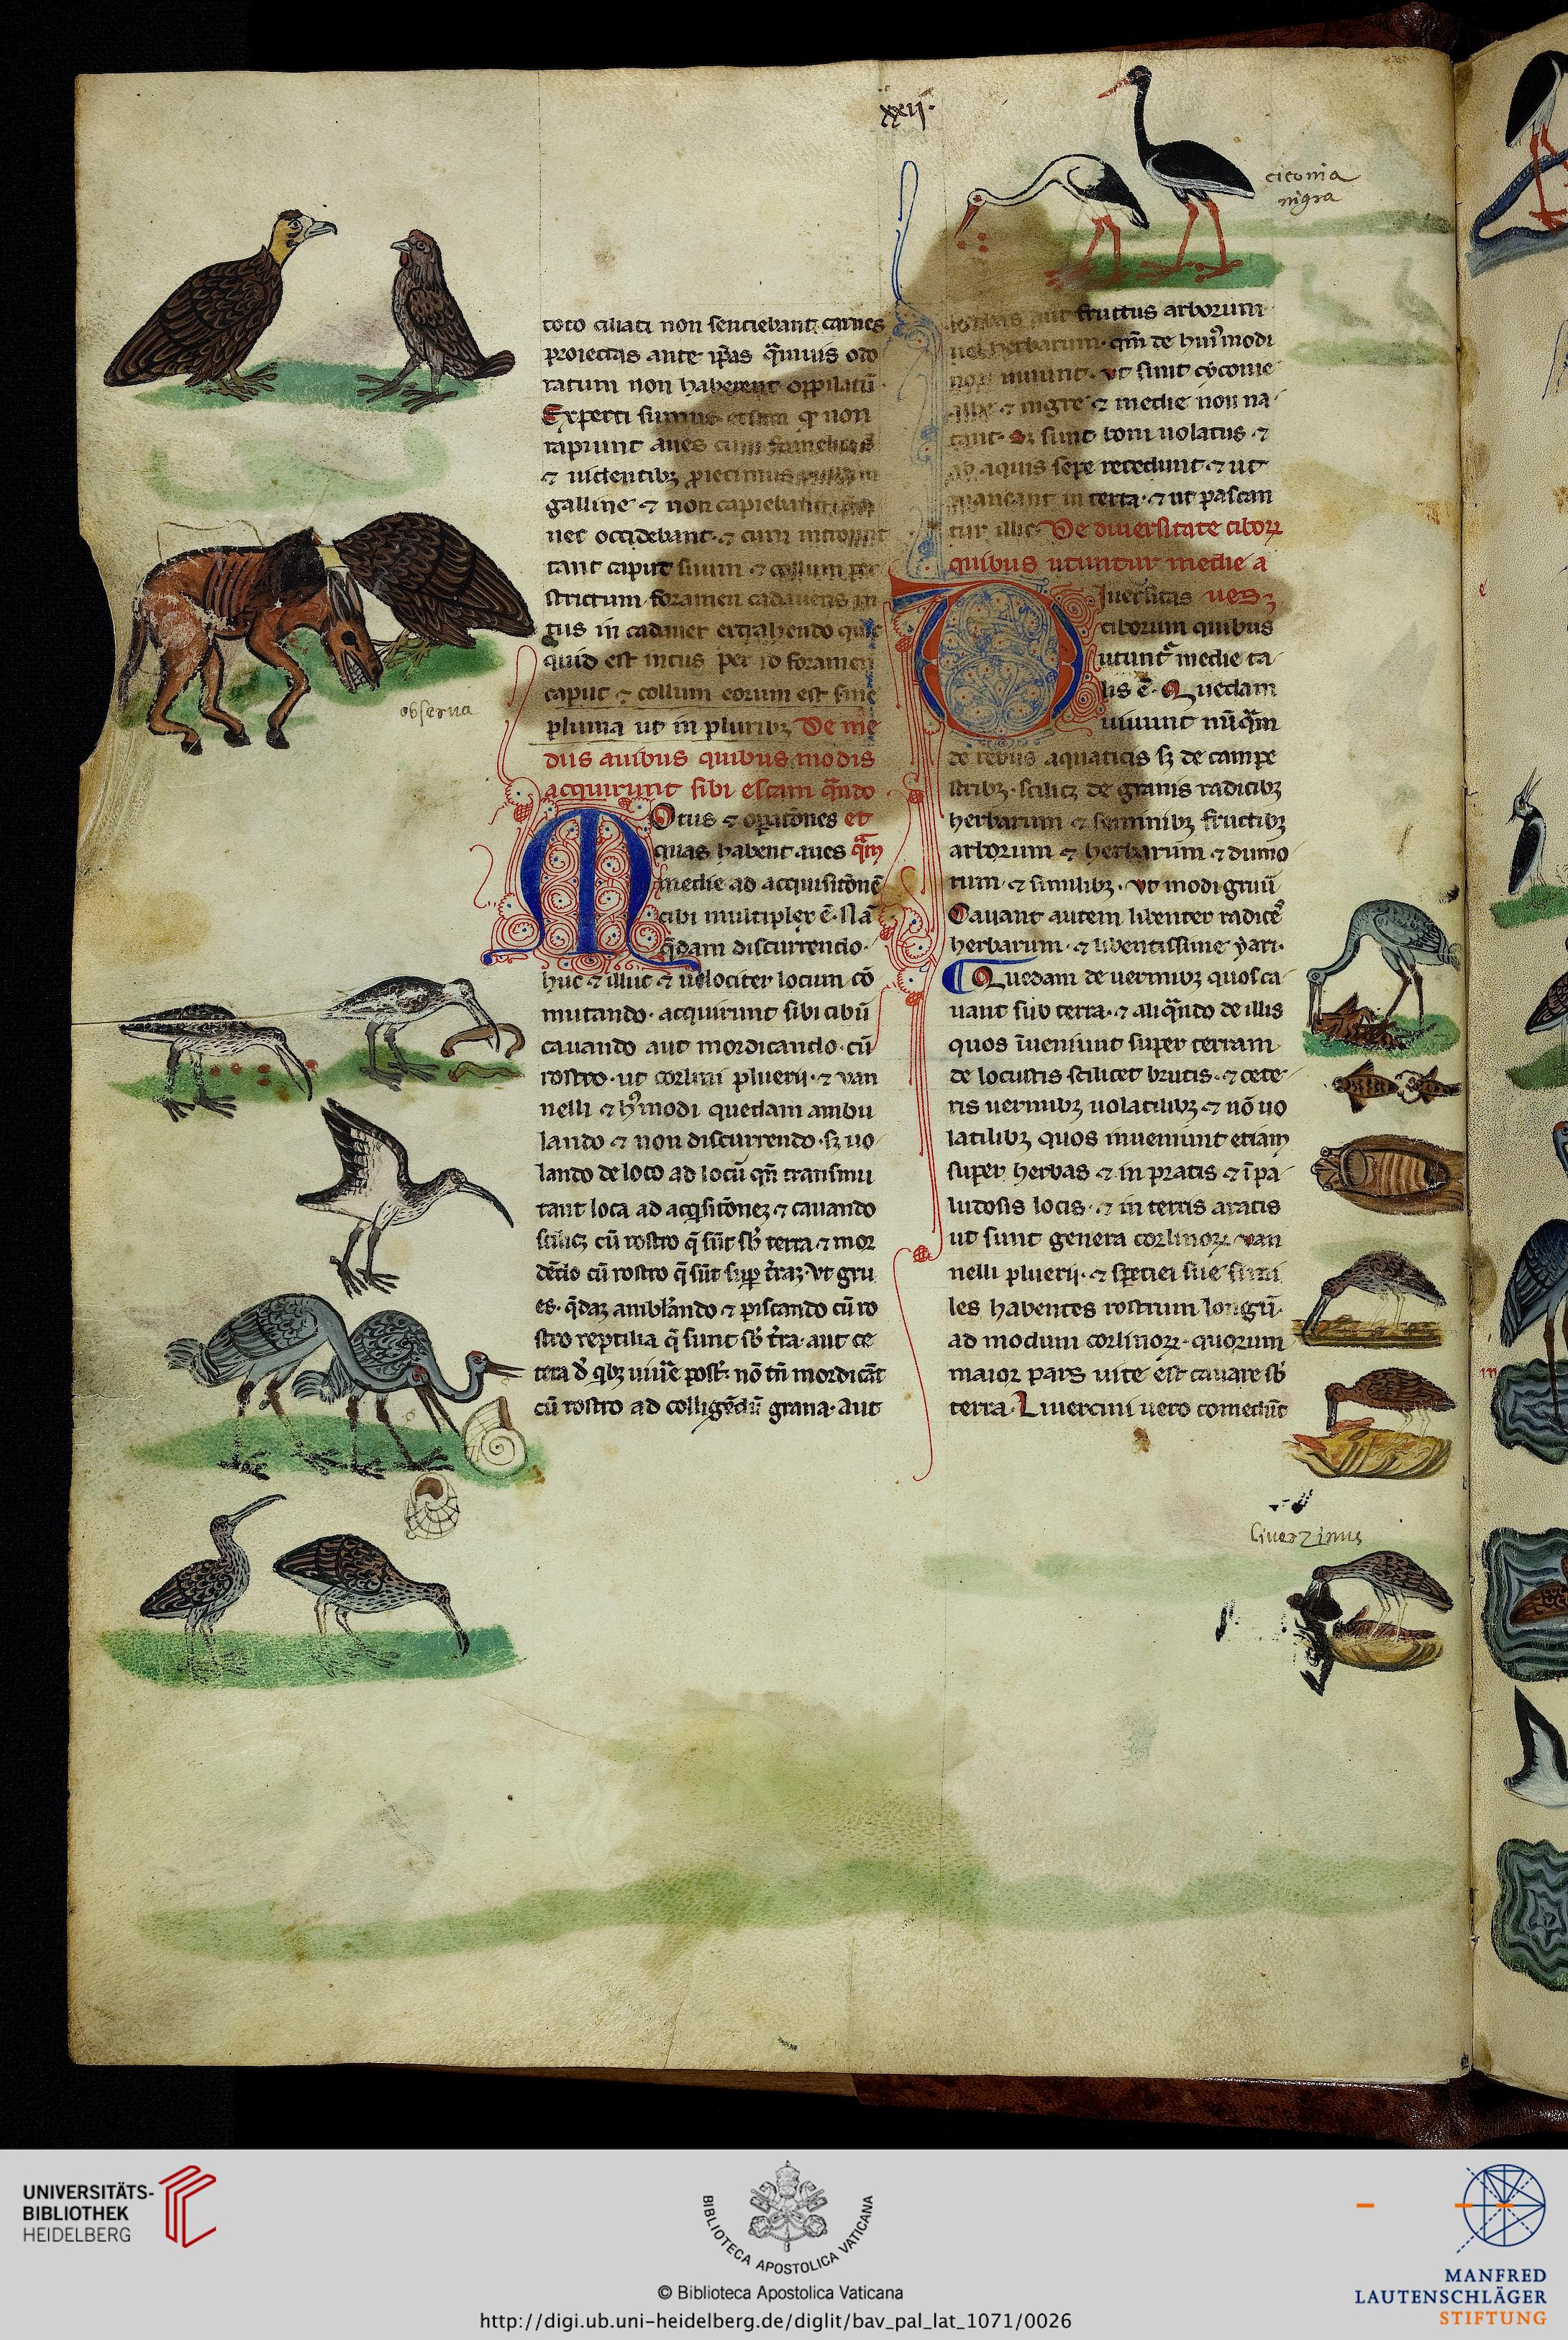 xxij.
ciconia
nigra
toto ciliati non sentiebant carnes
proiectas ante ip̃as q̃muis odo
ratum non haberent oppilatũ.
Experti sumus etiam qꝛ non
rapiunt aues cum
⁊ uidentibꝫ proiecimus
galline ⁊ non capiebant
nec occidebant. ⁊ cum
tant caput suum ⁊ collum per
strictum foramen cadaueris in
tus in cadauer extrahendo quic
quid est intus per id foramen
caput ⁊ collum eorum est sine
pluma ut in pluribꝫ De me
diis auibus quibus modis
acquirunt sibi escam q̃ndo
Motus ⁊ oꝑatiões et
quas habent aues q̃m
medie ad acquisitionẽ
cibi multiplex ẽ. Nã
q̃dam discurrendo.
huc ⁊ illuc ⁊ uelociter locum cõ
mutando. acquirunt sibi cibũ
cauando aut mordicando. cũ
rostro. ut corlini pluerij. ⁊ van
nelli ⁊ hꝰmodi quedam ambu
lando ⁊ non discurrendo. sꝫ uo
lando de loco ad locũ qñ transmu
tant loca ad acq̇sitõnez ⁊ cauando
scilicꝫ cũ rostro q̃ sũt sb̃ terra ⁊ mor
dẽdo cũ rostro q̃ sũt sup̃ t̃raz. Vt gru
es. q̃daz ambl̃ando ⁊ piscando cũ ro
stro reptilia q̃ sunt sb̃ t̃ra. aut ce
tera d̃ qbꝫ uiu̾e post̃. nõ tñ mordicãt
cũ rostro ad colligẽdũ grana. aut
obserua
aut fructus arborum
uel herbarum. qm̃ de huiꝰmodi
non uiuunt. vt sunt cyconie
albe ⁊ nigre ⁊ medie non na
tant. Sꝫ sunt boni uolatus ⁊
ab aquis sepe recedunt ⁊ ut
maneant in terra. ⁊ ut pascan
tur illic. De diuersitate ciborꝝ
quibus utuntur medie a
Diuersitas ues.
ciborum quibus
utunt᷑ medie ta
lis ẽ. Quedam
uiuunt nũq̃m
de rebus aquaticis sꝫ de campe
stribꝫ. scilicꝫ de granis radicibꝫ
herbarum ⁊ seminibꝫ fructibꝫ
arborum ⁊ herbarum ⁊ dumo
rum ⁊ similibꝫ. vt modi gruũ
Cauant autem libenter radices
herbarum. ⁊ libentissime yari.
Quedam de uermibꝫ quos ca
uant sub terra. ⁊ aliq̃ndo de illis
quos ĩueniunt super terram
de locustis scilicet brucis. ⁊ cete
ris uermibꝫ uolatilibꝫ ⁊ nõ uo
latilibꝫ quos inueniunt etiam
super herbas ⁊ in pratis ⁊ ĩ pa
ludosis locis. ⁊ in terris aratis
ut sunt genera corlinorꝝ van
nelli pluerij. ⁊ speciei sue simi
les habentes rostrum longũ.
ad modum corlinorꝝ. quorum
maior pars uite est cauare sb̃
terra. Liuercini uero comedũt
liuerzinus
UNIVERSITÄTS-
BIBLIOTHEK
HEIDELBERG
BIBLIOTECA APOSTOLICA VATICANA
© Biblioteca Apostolica Vaticana
http://digi.ub.uni-heidelberg.de/diglit/bav_pal_lat_1071/0026
MANFRED
LAUTENSCHLÄGER
STIFTUNG